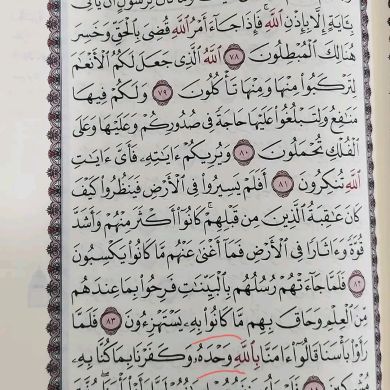 بِـَٔايَةٍ إِلَّا بِإِذْنِ ٱللَّهِۚ فَإِذَا جَآءَ أَمْرُ ٱللَّهِ قُضِىَ بِٱلْحَقِّ وَخَسِرَ
هُنَالِكَ ٱلْمُبْطِلُونَ ٧٨ ٱللَّهُ ٱلَّذِى جَعَلَ لَكُمُ ٱلْأَنْعَٰمَ
لِتَرْكَبُوا۟ مِنْهَا وَمِنْهَا تَأْكُلُونَ ٧٩ وَلَكُمْ فِيهَا
مَنَٰفِعُ وَلِتَبْلُغُوا۟ عَلَيْهَا حَاجَةً فِى صُدُورِكُمْ وَعَلَيْهَا وَعَلَى
ٱلْفُلْكِ تُحْمَلُونَ ٨٠ وَيُرِيكُمْ ءَايَٰتِهِۦ فَأَىَّ ءَايَٰتِ
ٱللَّهِ تُنكِرُونَ ٨١ أَفَلَمْ يَسِيرُوا۟ فِى ٱلْأَرْضِ فَيَنظُرُوا۟ كَيْفَ
كَانَ عَٰقِبَةُ ٱلَّذِينَ مِن قَبْلِهِمْۚ كَانُوٓا۟ أَكْثَرَ مِنْهُمْ وَأَشَدَّ
قُوَّةً وَءَاثَارًا فِى ٱلْأَرْضِ فَمَآ أَغْنَىٰ عَنْهُم مَّا كَانُوا۟ يَكْسِبُونَ
٨٢ فَلَمَّا جَآءَتْهُمْ رُسُلُهُم بِٱلْبَيِّنَٰتِ فَرِحُوا۟ بِمَا عِندَهُم
مِّنَ ٱلْعِلْمِ وَحَاقَ بِهِم مَّا كَانُوا۟ بِهِۦ يَسْتَهْزِءُونَ ٨٣ فَلَمَّا
رَأَوْا۟ بَأْسَنَا قَالُوٓا۟ ءَامَنَّا بِٱللَّهِ وَحْدَهُۥ وَكَفَرْنَا بِمَا كُنَّا بِهِۦ